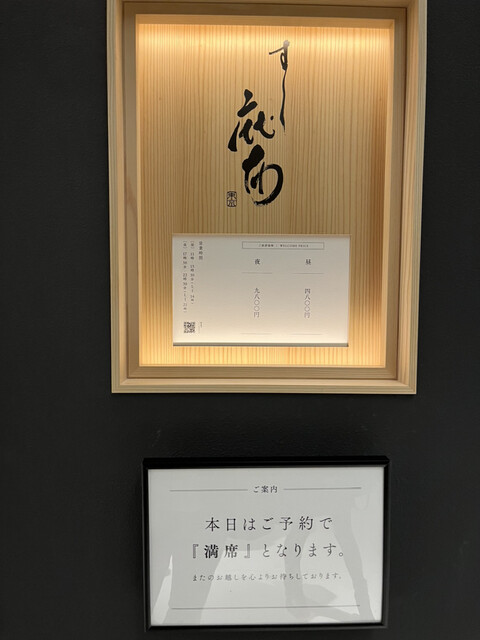 すし
麻布
昼
四八〇〇円
夜
九八〇〇円
営業時間
ご案内
本日はご予約で
『満席』となります。
またのお越しを心よりお待ちしております。